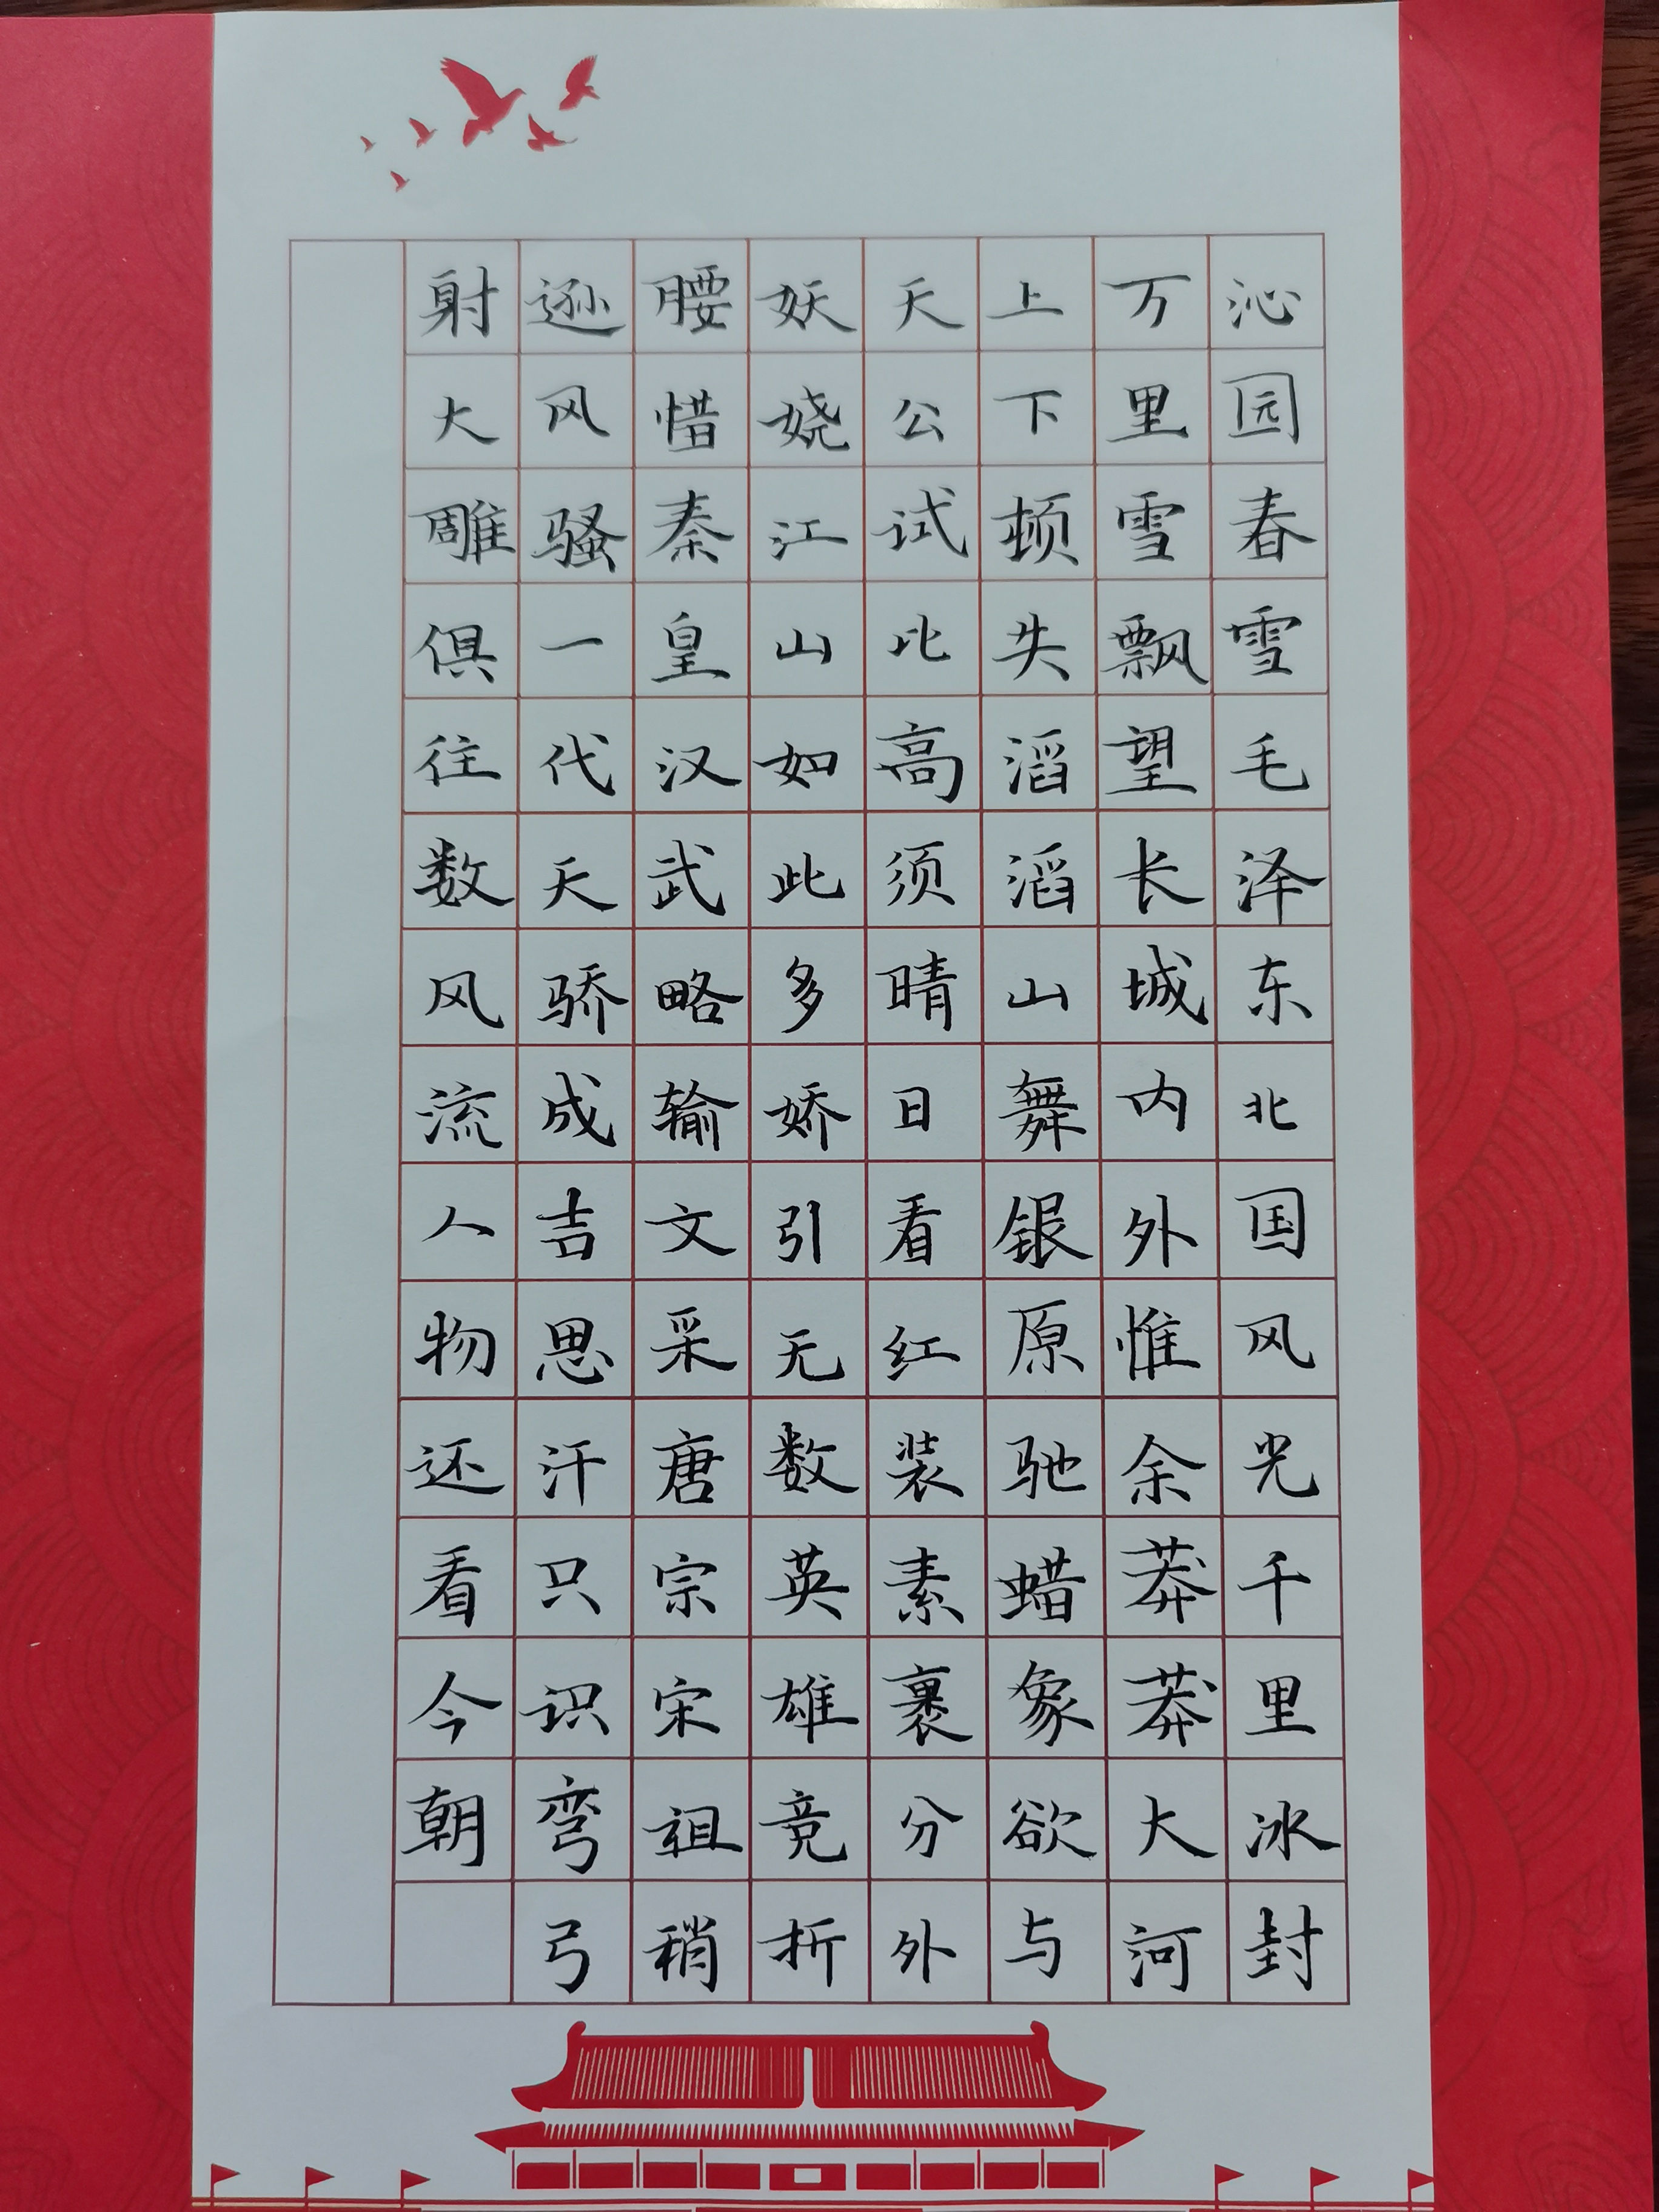 沁园春雪毛泽东北国风光千里冰封
万里雪飘望长城内外惟余莽莽大河
上下顿失滔滔山舞银原驰蜡象欲与
天公试比高须晴日看红装素裹分外
妖娆江山如此多娇引无数英雄竞折
腰惜秦皇汉武略输文采唐宗宋祖稍
逊风骚一代天骄成吉思汗只识弯弓
射大雕俱往数风流人物还看今朝